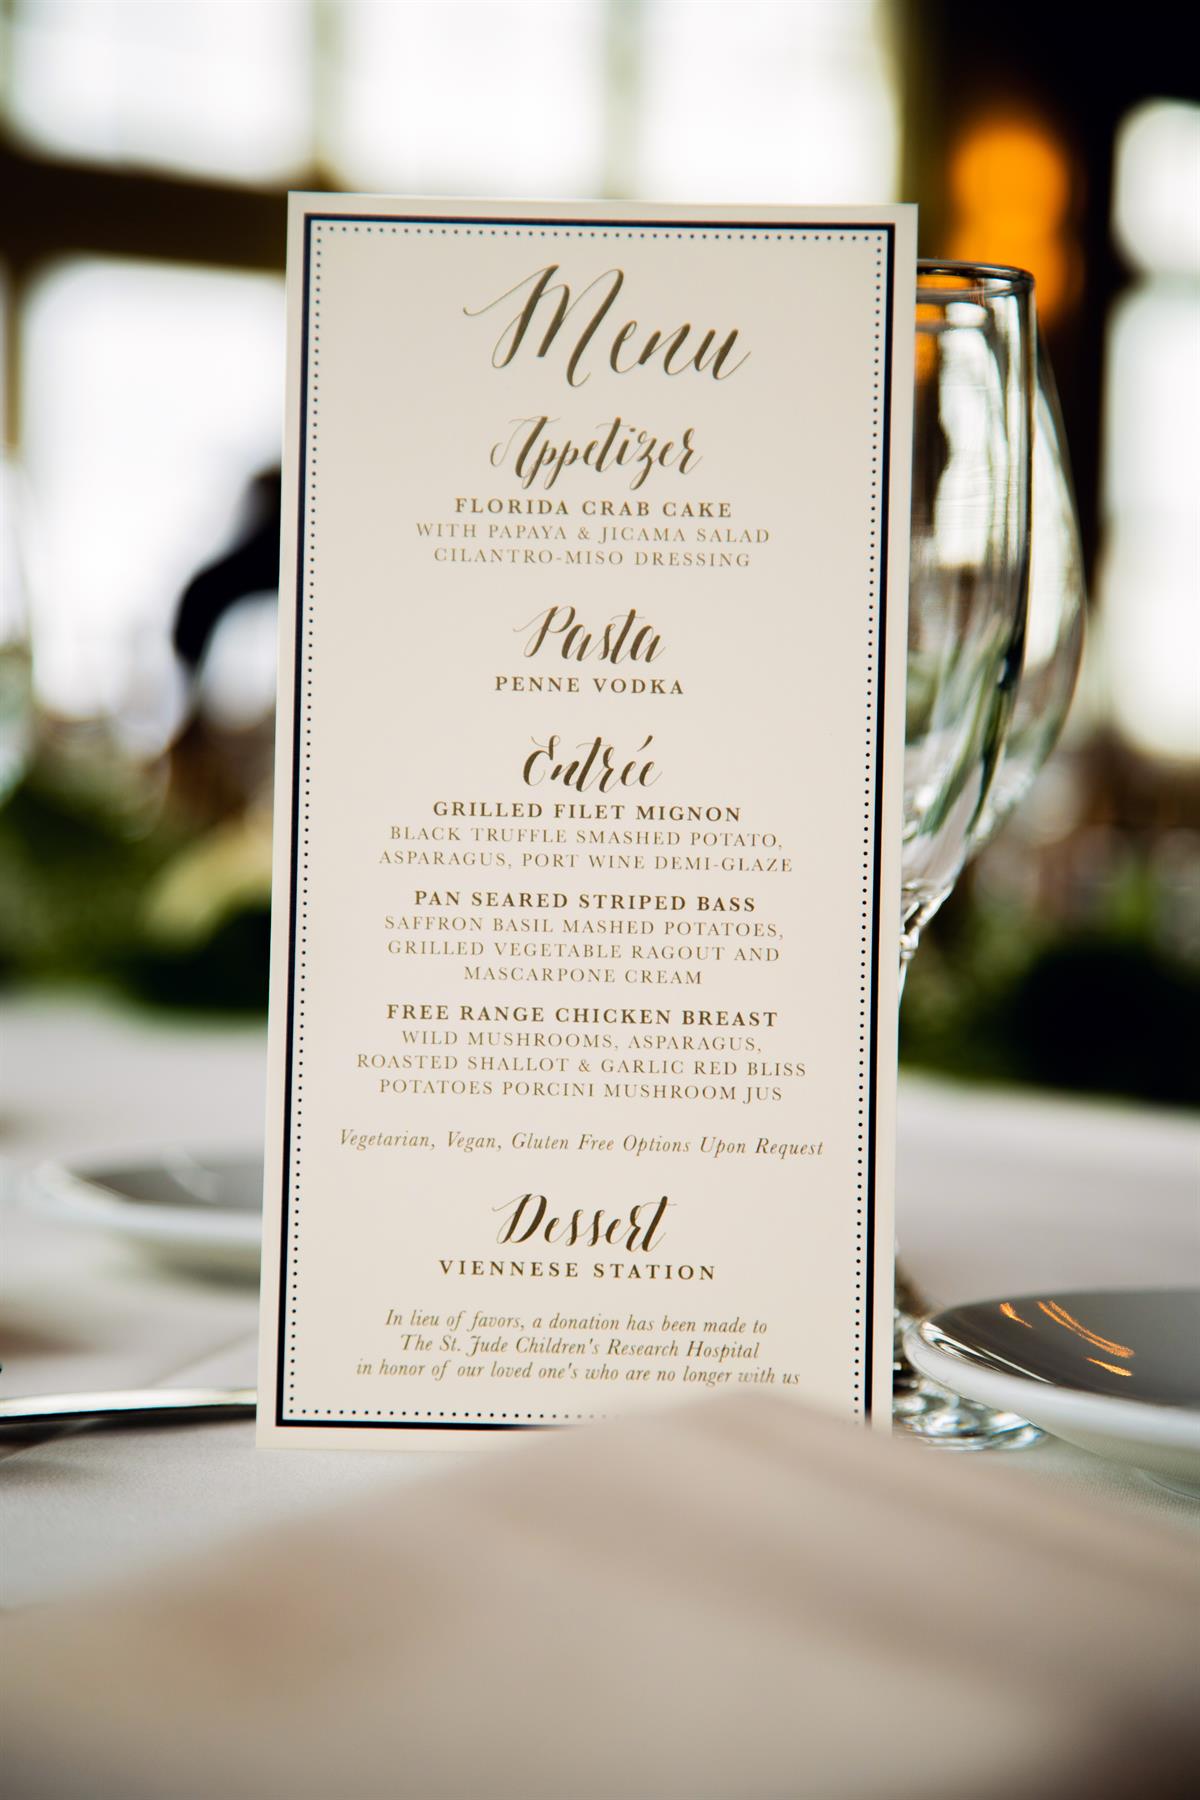 Menu
Appetizer
FLORIDA CRAB CAKE
WITH PAPAYA & JICAMA SALAD
CILANTRO-MISO DRESSING
Pasta
PENNE VODKA
Entrée
GRILLED FILET MIGNON
BLACK TRUFFLE SMASHED POTATO,
ASPARAGUS, PORT WINE DEMI-GLAZE
PAN SEARED STRIPED BASS
SAFFRON BASIL MASHED POTATOES,
GRILLED VEGETABLE RAGOUT AND
MASCARPONE CREAM
FREE RANGE CHICKEN BREAST
WILD MUSHROOMS, ASPARAGUS,
ROASTED SHALLOT & GARLIC RED BLISS
POTATOES PORCINI MUSHROOM JUS
Vegetarian, Vegan, Gluten Free Options Upon Request
Dessert
VIENNESE STATION
In lieu of favors, a donation has been made to
The St. Jude Children's Research Hospital
in honor of our loved one's who are no longer with us